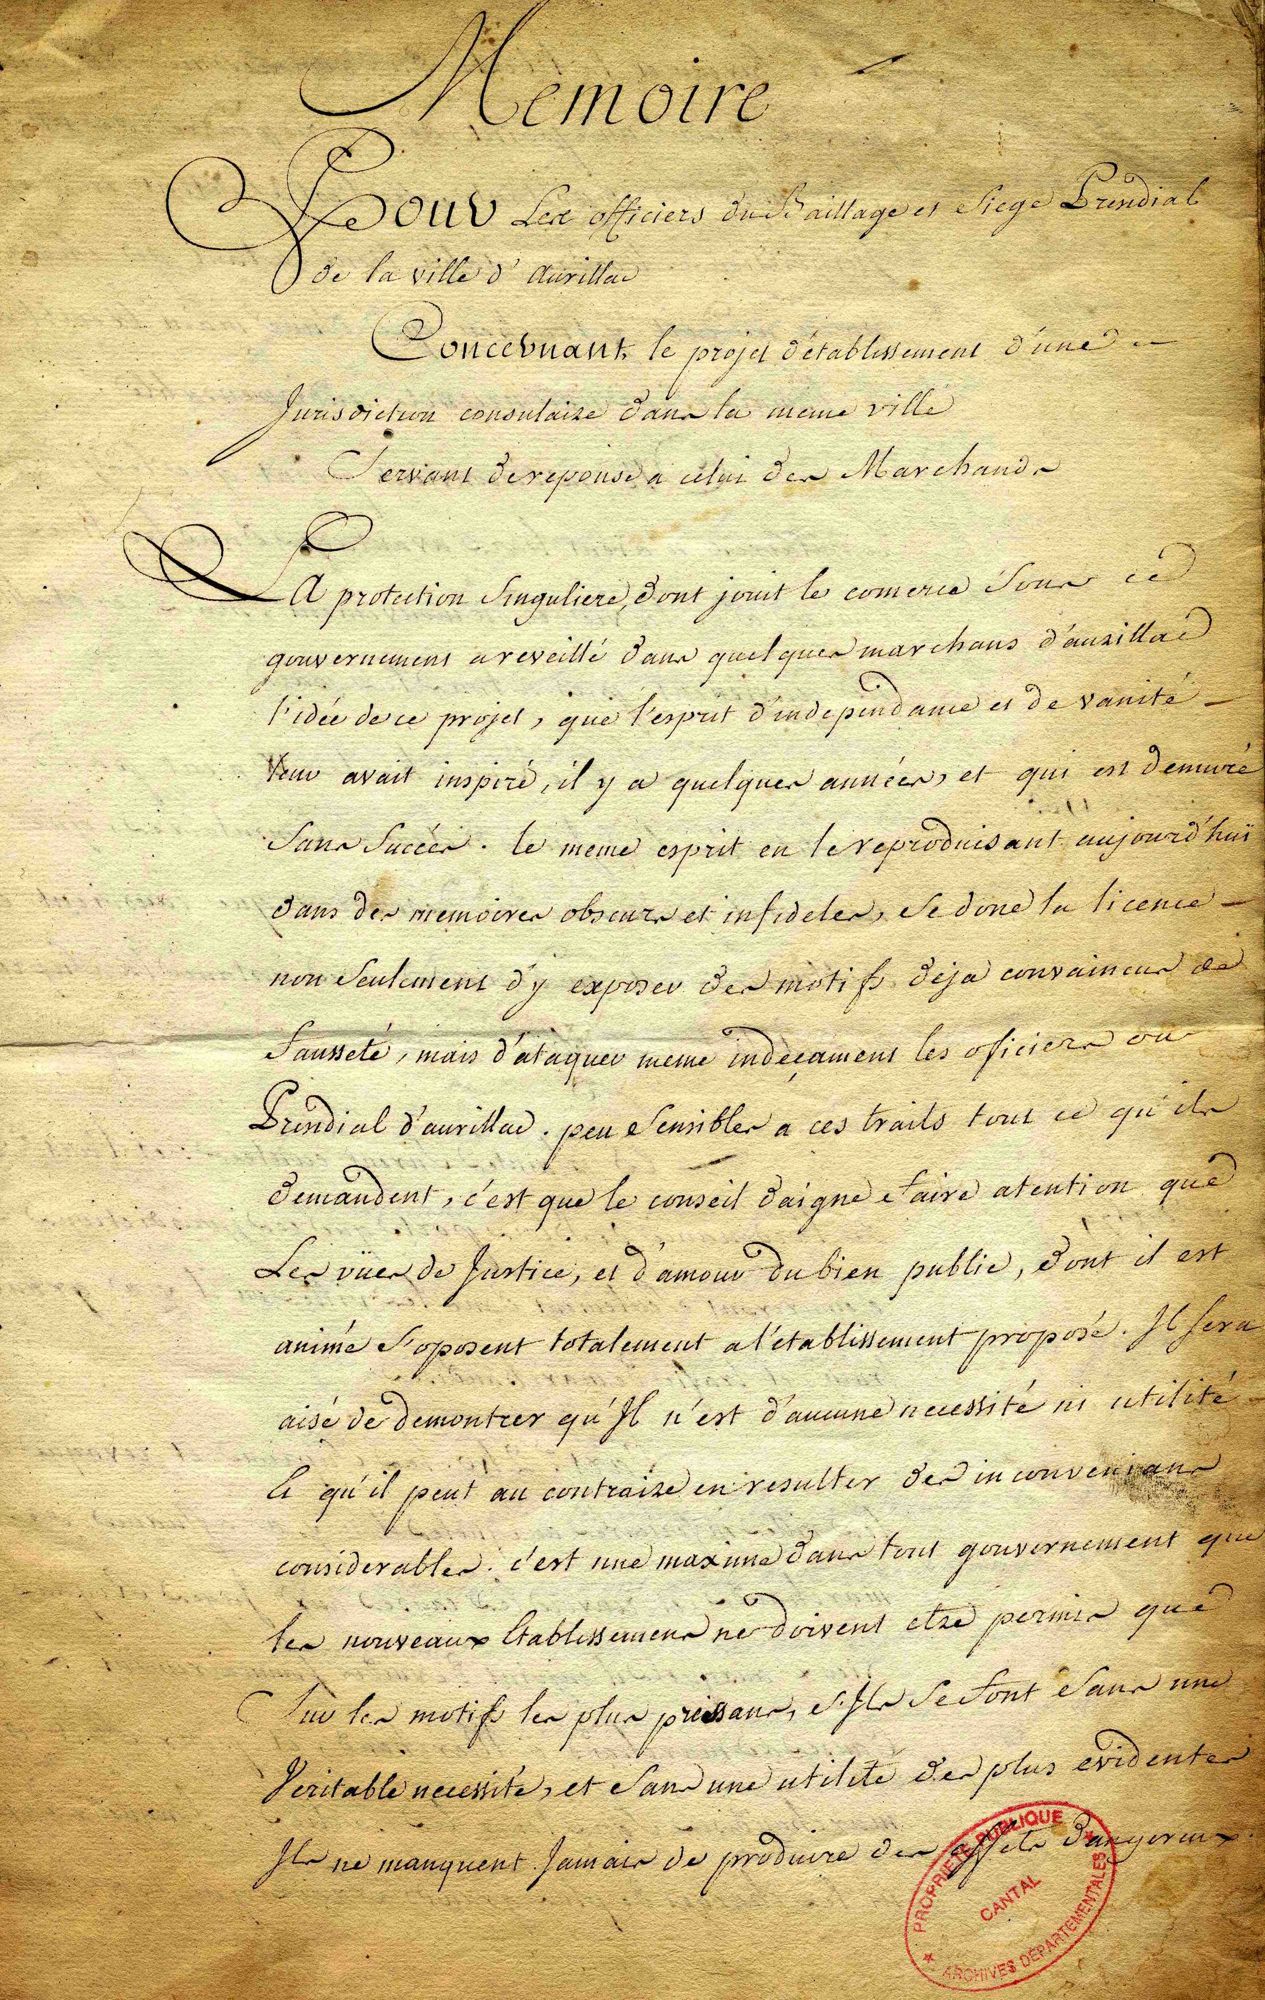 Memoire
Pour Les officiers du Baillage et siege Presidial
de la ville d'Aurillac
Concernant le projet d'établissement d'une
Jurisdiction consulaire dans la meme ville
Servant de reponse a celui des Marchands
LA protection singuliere, dont jouit le comerce sous ce
gouvernement a reveillé dans quelques marchans d'aurillac
l'idée de ce projet, que l'esprit d'independance et de vanité
leur avait inspiré, il y a quelques années, et qui est demuré
sans succés. le meme esprit en le reproduisant aujourd'hui
dans des memoires obscurs et infideles, se done la licence
non seulement d'y exposer des motifs deja convaincus de
fausseté, mais d'ataquer meme indeçament les oficiers du
Presidial d'aurillac. peu sensibles a ces traits tout ce qu'ils
demandent, c'est que le conseil daigne faire atention que
Les vües de Justice, et d'amour du bien public, dont il est
animé s'oposent totalement a l'établissement proposé. Il sera
aisé de demontrer qu'Il n'est d'aucune necessité ni utilité
Et qu'il peut au contraire en resulter des inconvenians
considerables. c'est une maxime dans tout gouvernement que
les nouveaux Etablissemens ne doivent etre permis que
Sur les motifs les plus pressans, s'Ils se font sans une
Veritable necessité, et sans une utilité des plus evidentes
Ils ne manquent Jamais de produire des effets dangereux.
PROPRIETE PUBLIQUE
CANTAL
ARCHIVES DÉPARTEMENTALES